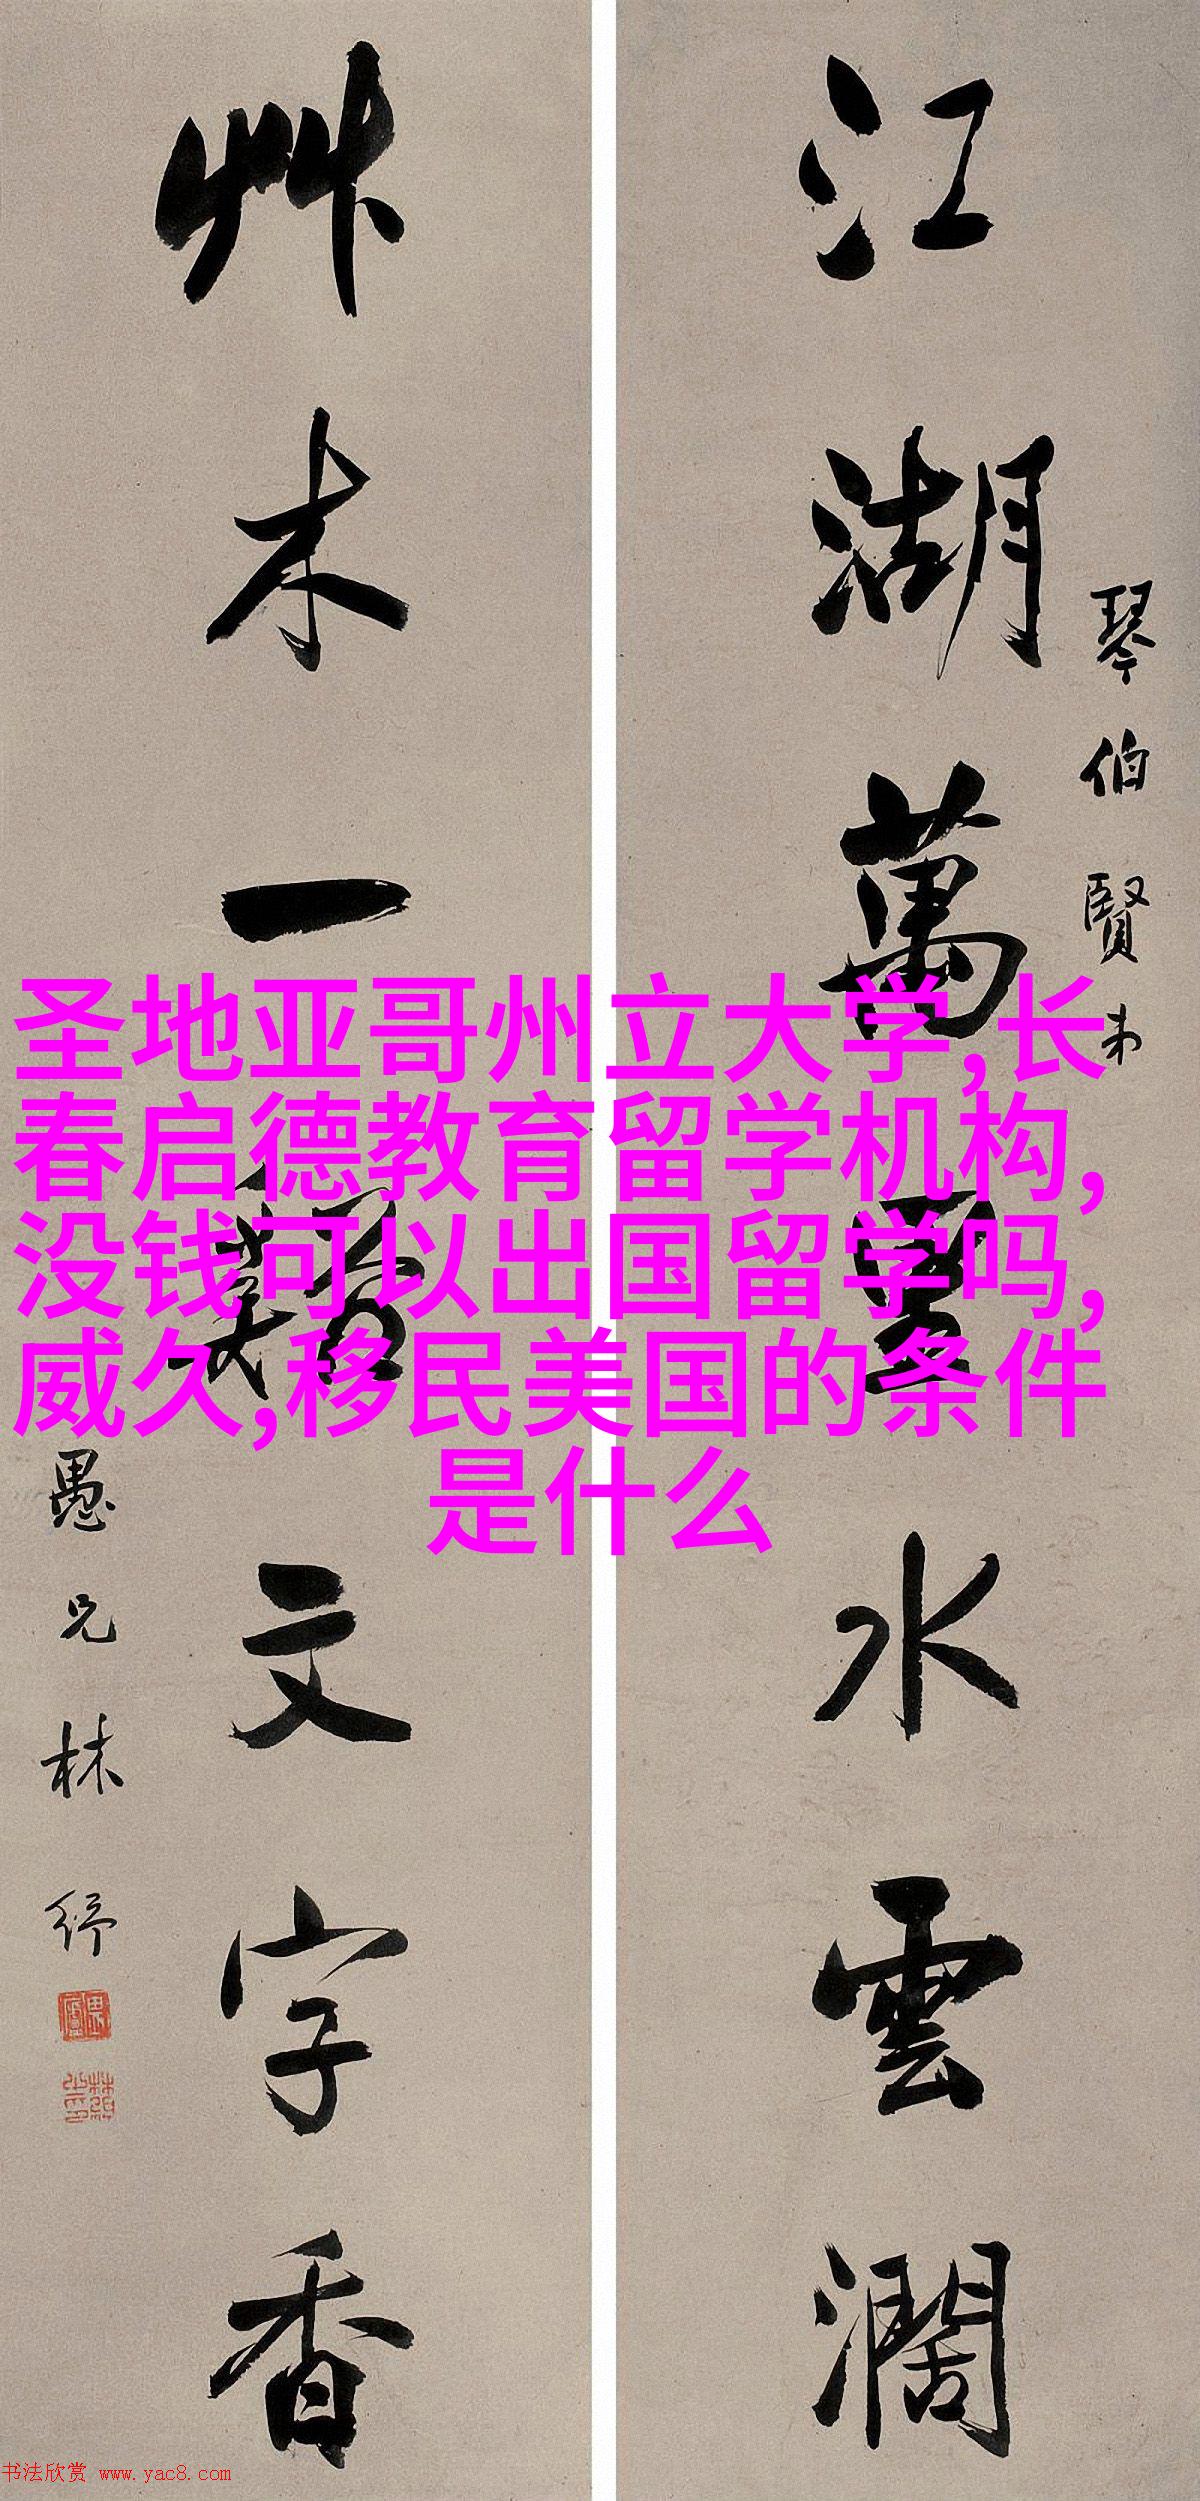 江湖萬里水雲濶
琴伯賢
艸木一谿文字香
愚兄林紓
畏廬
圣地亚哥州立大学,长
春启德教育留学机构,
没钱可以出国留学吗,
威久,移民美国的条件
是什么
书法欣赏 www.yac8.com